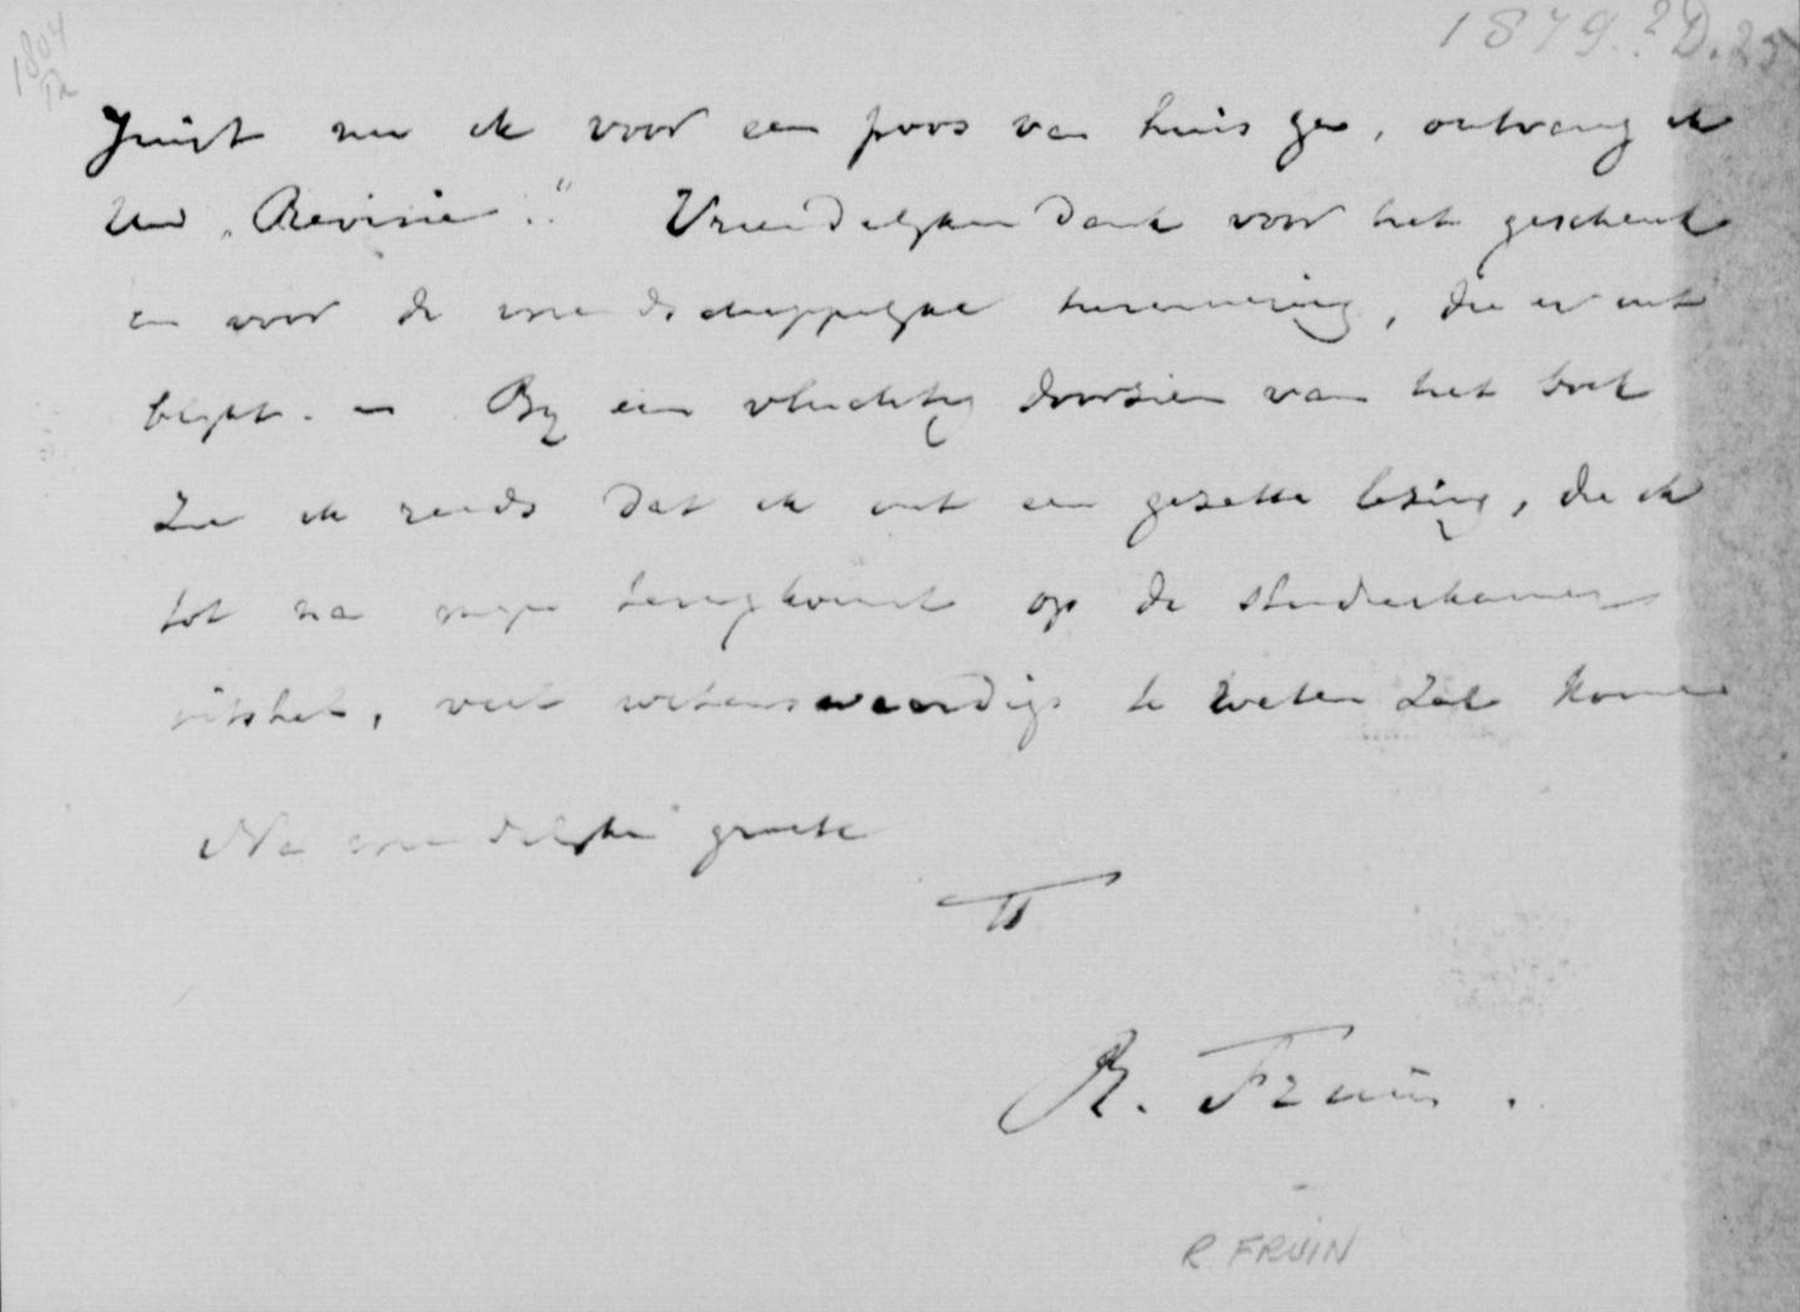 1879.? D. 25
1804
Juist nu ik voor een poos van huis ga, ontvang ik
Uw „Revisie." Vriendelijken dank voor het geschenk
en voor de vriendschappelijke herinnering, die er uit
blijkt. — Bij een vluchtig doorzien van het boek
zie ik reeds dat ik uit een gezette lezing, die ik
tot na mijn terugkomst op de studeerkamer
uitstel, veel wetenswaardigs te weten zal komen
Na vriendelijke groete
TT
R. Fruin.
R. FRUIN